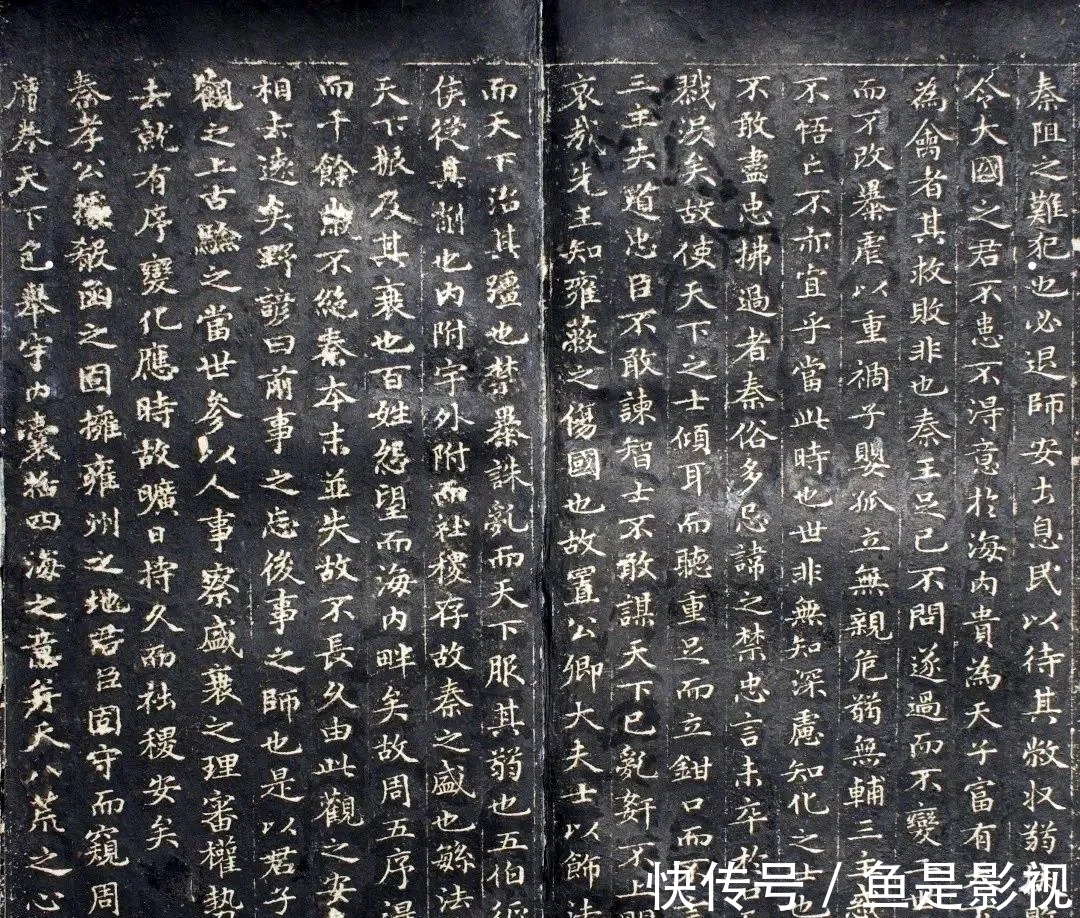 秦阻之難犯也必退師安土息民以待其敝収弱
令大國之君不患不淂意於海内貴為天子富有
為禽者其救敗非也秦王足已不問遂過而不變
而不改暴虐以重禍子嬰孤立無親危弱無輔三主
不悟亡不亦宜乎當此時也世非無知深慮知化之士也
不敢盡忠拂過者秦俗多忌諱之禁忠言未卒於
戮没矣故使天下之士傾耳而聽重足而立鉗口而不
三主失道忠臣不敢諫智士不敢謀天下已亂姧不上
哀哉先主知雍蔽之傷國也故置公卿大夫士以飾法
而天下治其彊也禁暴誅亂而天下服其弱也五伯征
侯從其削也内附宇外附而社稷存故秦之盛也繁法
天下振及其衰也百姓怨望而海内畔矣故周五序淂
而千餘歲不絶秦本末並失故不長久由此觀之安
相去遠矣野諺曰前事之忘後事之師也是以君子
觀之上古驗之當世參以人事察盛衰之理審權勢
去就有序變化應時故曠日持久而社稷安矣
秦孝公據殽函之固擁雍州之地君臣固守而窺周
席巻天下包舉宇内囊括四海之意并天八荒之心
快传号 / 鱼是影视